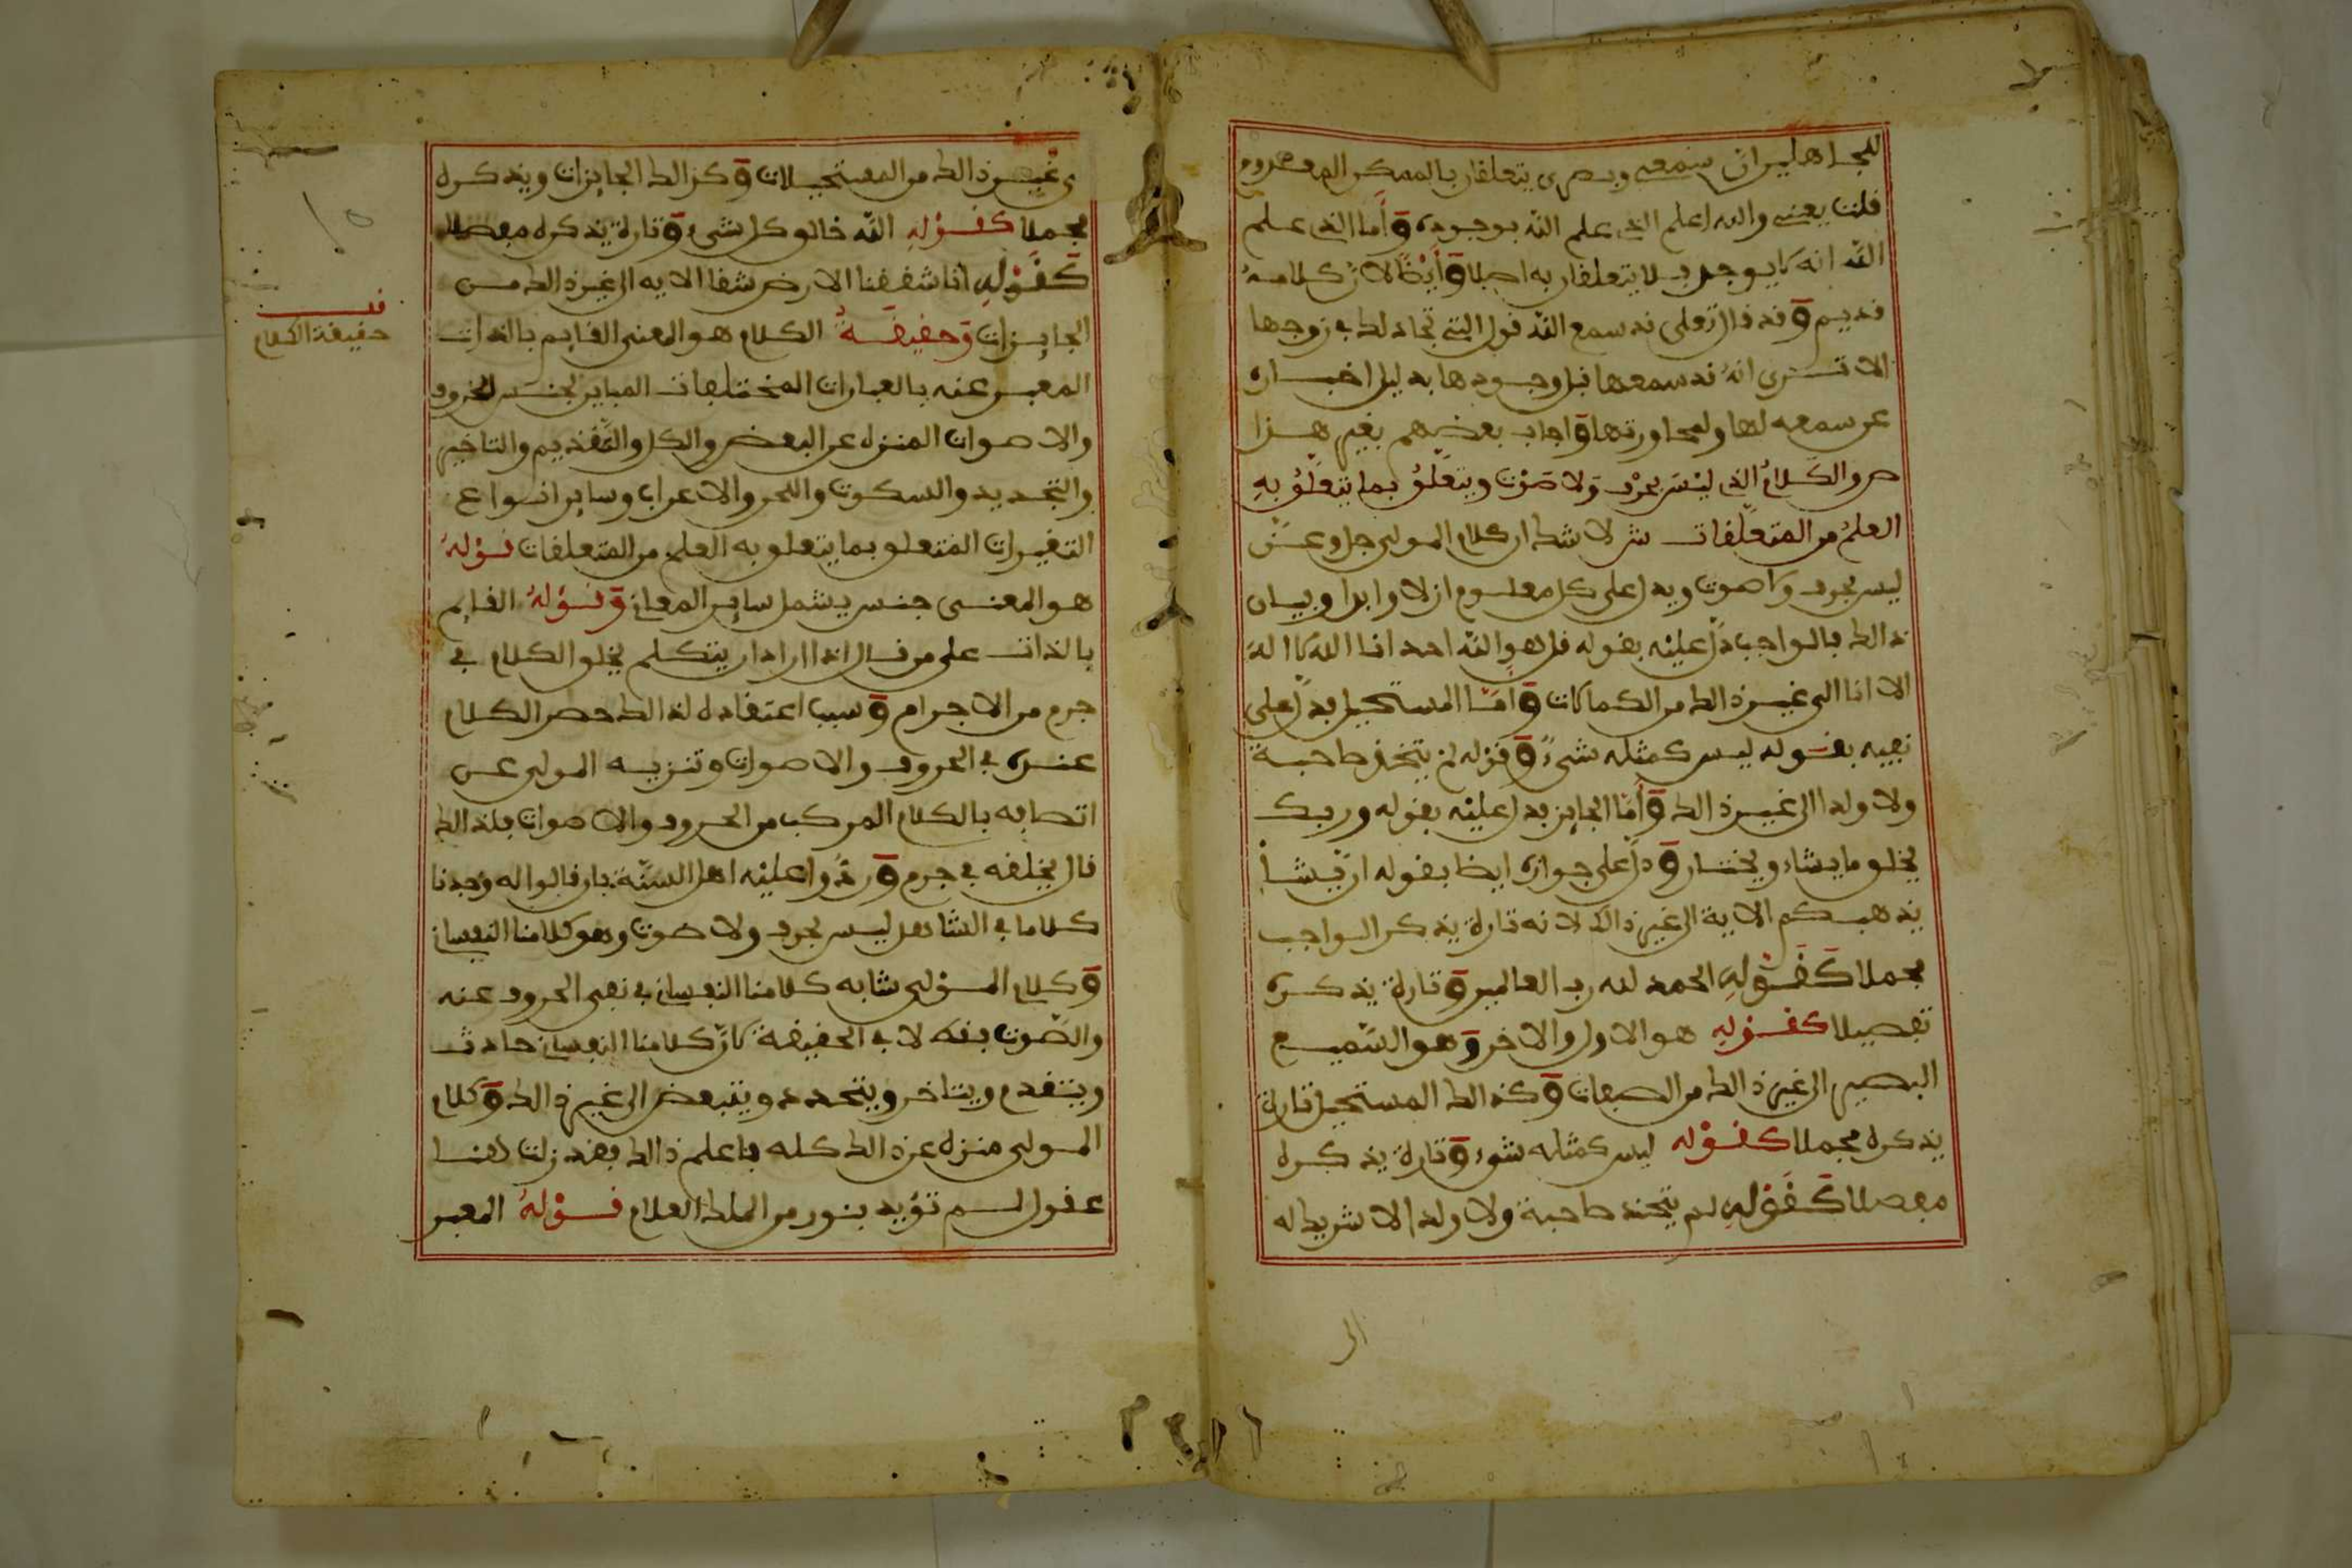 للجـاهليران سمعى وبصرى يتعلقان بالممكن المعدوم
قلت يعنى والله اعلم الذى علم الله بوجوده وأما الذى علم
الله انه لا يوجد فلا يتعلقان به اصلا وأيضا لان كلامه
قديم وقد قال تعلى قد سمع الله قول التى تجادلك فى زوجها
الا تـرى انه قد سمعها قبل وجودها بدليل اخباره
عن سمعه لها ولمحاورتها واجاب بعضهم بغير هـذا
ص والكلام الذى ليس بحرف ولا صوت ويتعلق بما يتعلق به
العلم من المتعلقات ش لا شك ان كلام المولى جل وعز
ليس بحرف ولا صوت ويدل على كل معلوم ازلا وابدا وبيان
ذالك فالواجب دل عليه بقوله قل هو الله احد انا الله لا اله
الا انا الى غير ذالك من الكمالات وأما المستحيل فدل على
نفيه بقوله ليس كمثله شىء وقوله لم يتخذ صاحبة
ولا ولدا الى غير ذالك وأما الجايز فدل عليه بقوله وربك
يخلق ما يشاء ويختار ودل على جوازه ايضا بقوله ان يشأ
يذهبكم الاية الى غير ذالك لانه تارة يذكر الواجب
مجملا كقوله الحمد لله رب العالمين وتارة يذكره
تفصيلا كقوله هو الاول والاخر وهو السميع
البصير الى غير ذالك من الصفات وكذالك المستحيل تارة
يذكره مجملا كقوله ليس كمثله شىء وتارة يذكره
مفصلا كقوله لم يتخذ صاحبة ولا ولدا لا شريك له
الى
ى غير ذالك من المستحيلات وكذالك الجايزات ويذكره
مجملا كقوله الله خالق كل شىء وتارة يذكره مفصلا
كقوله انا شققنا الارض شقا الايه الى غير ذالك مـن
الجايزات وحقيقة الكلام هو المعنى القايم بالذات
المعبر عنه بالعبارات المختلفات المباين لجنس الحروف
والاصوات المنزه عن البعض والكل والتقديم والتاخير
والتجديد والسكوت واللحن والاعراب وساير انـواع
التغيرات المتعلق بما يتعلق به العلم من المتعلقات قوله
هو المعنى جنس يشمل ساير المعانى وقوله القايم
بالذات على من قال اذا اراد ان يتكلم يخلق الكلام فى
جرم من الاجرام وسبب اعتقاده لذالك حصر الكلام
عنده فى الحروف والاصوات وتنزيه المولى عـن
اتصافه بالكلام المركب من الحروف والاصوات فلذالك
قال يخلقه فى جرم وردوا عليه اهل السنة بان قالوا له وجدنا
كلاما فى الشاهد ليس بحرف ولا صوت وهو كلامنا النفسانى
وكلام المولى شابه كلامنا النفسانى فى نفى الحروف عنه
والصوت فقط لا فى الحقيقة لان كلامنا النفسانى حادث
ويتقدم ويتاخر ويتجدد ويتبعض الى غير ذالك وكلام
المولى منزه عن ذالك كله فاعلم ذالك فقد زلت هنـا
عقول لـم تؤيد بنور من الملك العلام قوله المعبر
قف
حقيقة الكلام